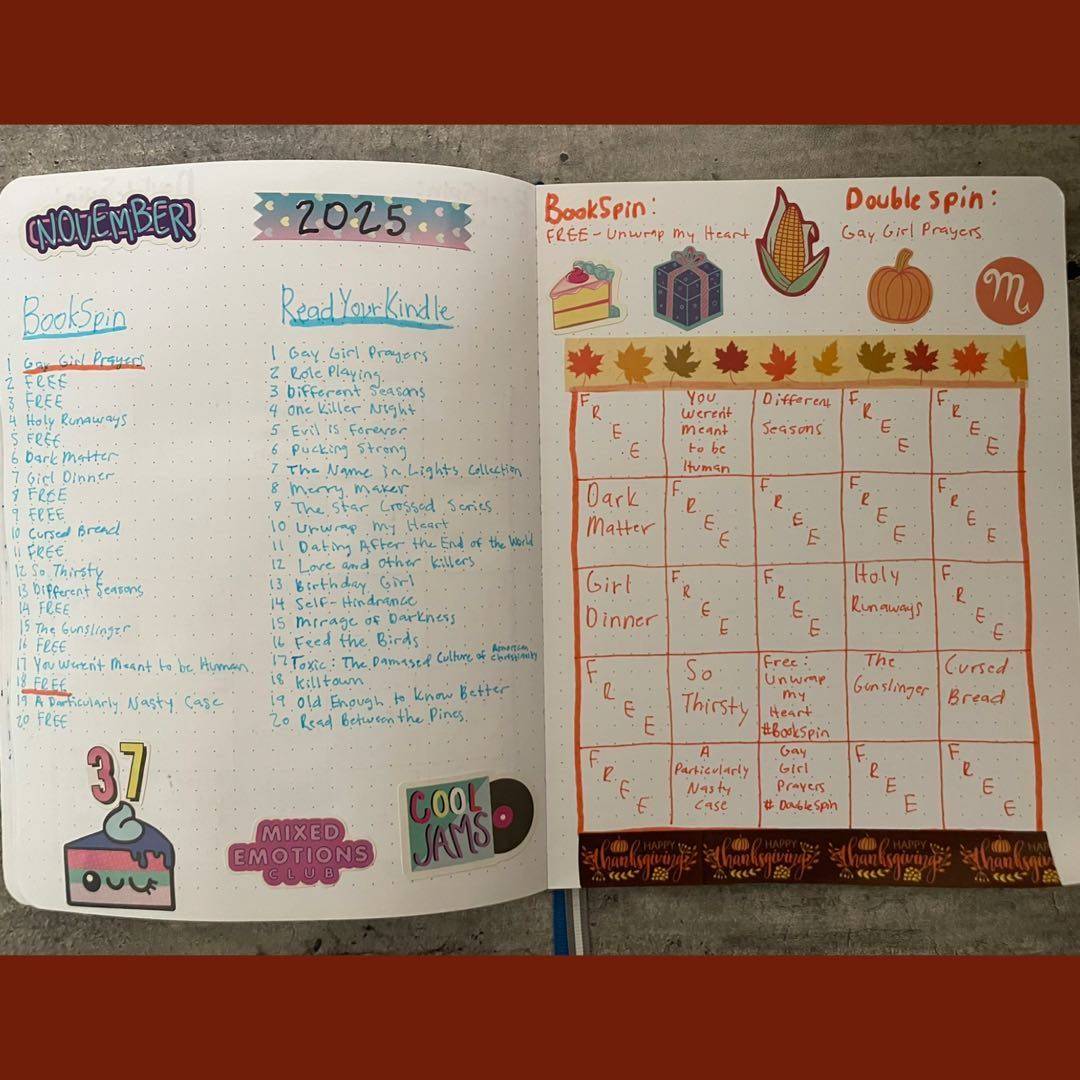 NOVEMBER
2025
BookSpin
1 Gay Girl Prayers
2 FREE
3 FREE
4 Holy Runaways
5 FREE
6 Dark Matter
7 Girl Dinner
8 FREE
9 FREE
10 Cursed Bread
11 FREE
12 So Thirsty
13 Different Seasons
14 FREE
15 The Gunslinger
16 FREE
17 You Weren't Meant to be Human
18 FREE
19 A Particularly Nasty Case
20 FREE
ReadYourKindle
1 Gay Girl Prayers
2 Role Playing
3 Different Seasons
4 One Killer Night
5 Evil is Forever
6 Pucking Strong
7 The Name in Lights Collection
8 Merry Maker
9 The Star Crossed Series
10 Unwrap My Heart
11 Dating After the End of the World
12 Love and other Killers
13 Birthday Girl
14 Self-Hindrance
15 Mirage of Darkness
16 Feed the Birds
17 Toxic: The Damaged Culture of American Christianity
18 Killtown
19 Old Enough to Know Better
20 Read Between the Pines
37
MIXED
EMOTIONS
CLUB
COOL
JAMS
BookSpin:
FREE - Unwrap My Heart
Double Spin:
Gay Girl Prayers
FREE
You
Weren't
Meant
to be
Human
Different
Seasons
FREE
FREE
Dark
Matter
FREE
FREE
FREE
FREE
Girl
Dinner
FREE
FREE
Holy
Runaways
FREE
FREE
So
Thirsty
Free:
Unwrap
My
Heart
#BookSpin
The
Gunslinger
Cursed
Bread
FREE
A
Particularly
Nasty
Case
Gay
Girl
Prayers
#DoubleSpin
FREE
FREE
HAPPY
thanksgiving
HAPPY
thanksgiving
HAPPY
thanksgiving
HAPPY
thanksgiving